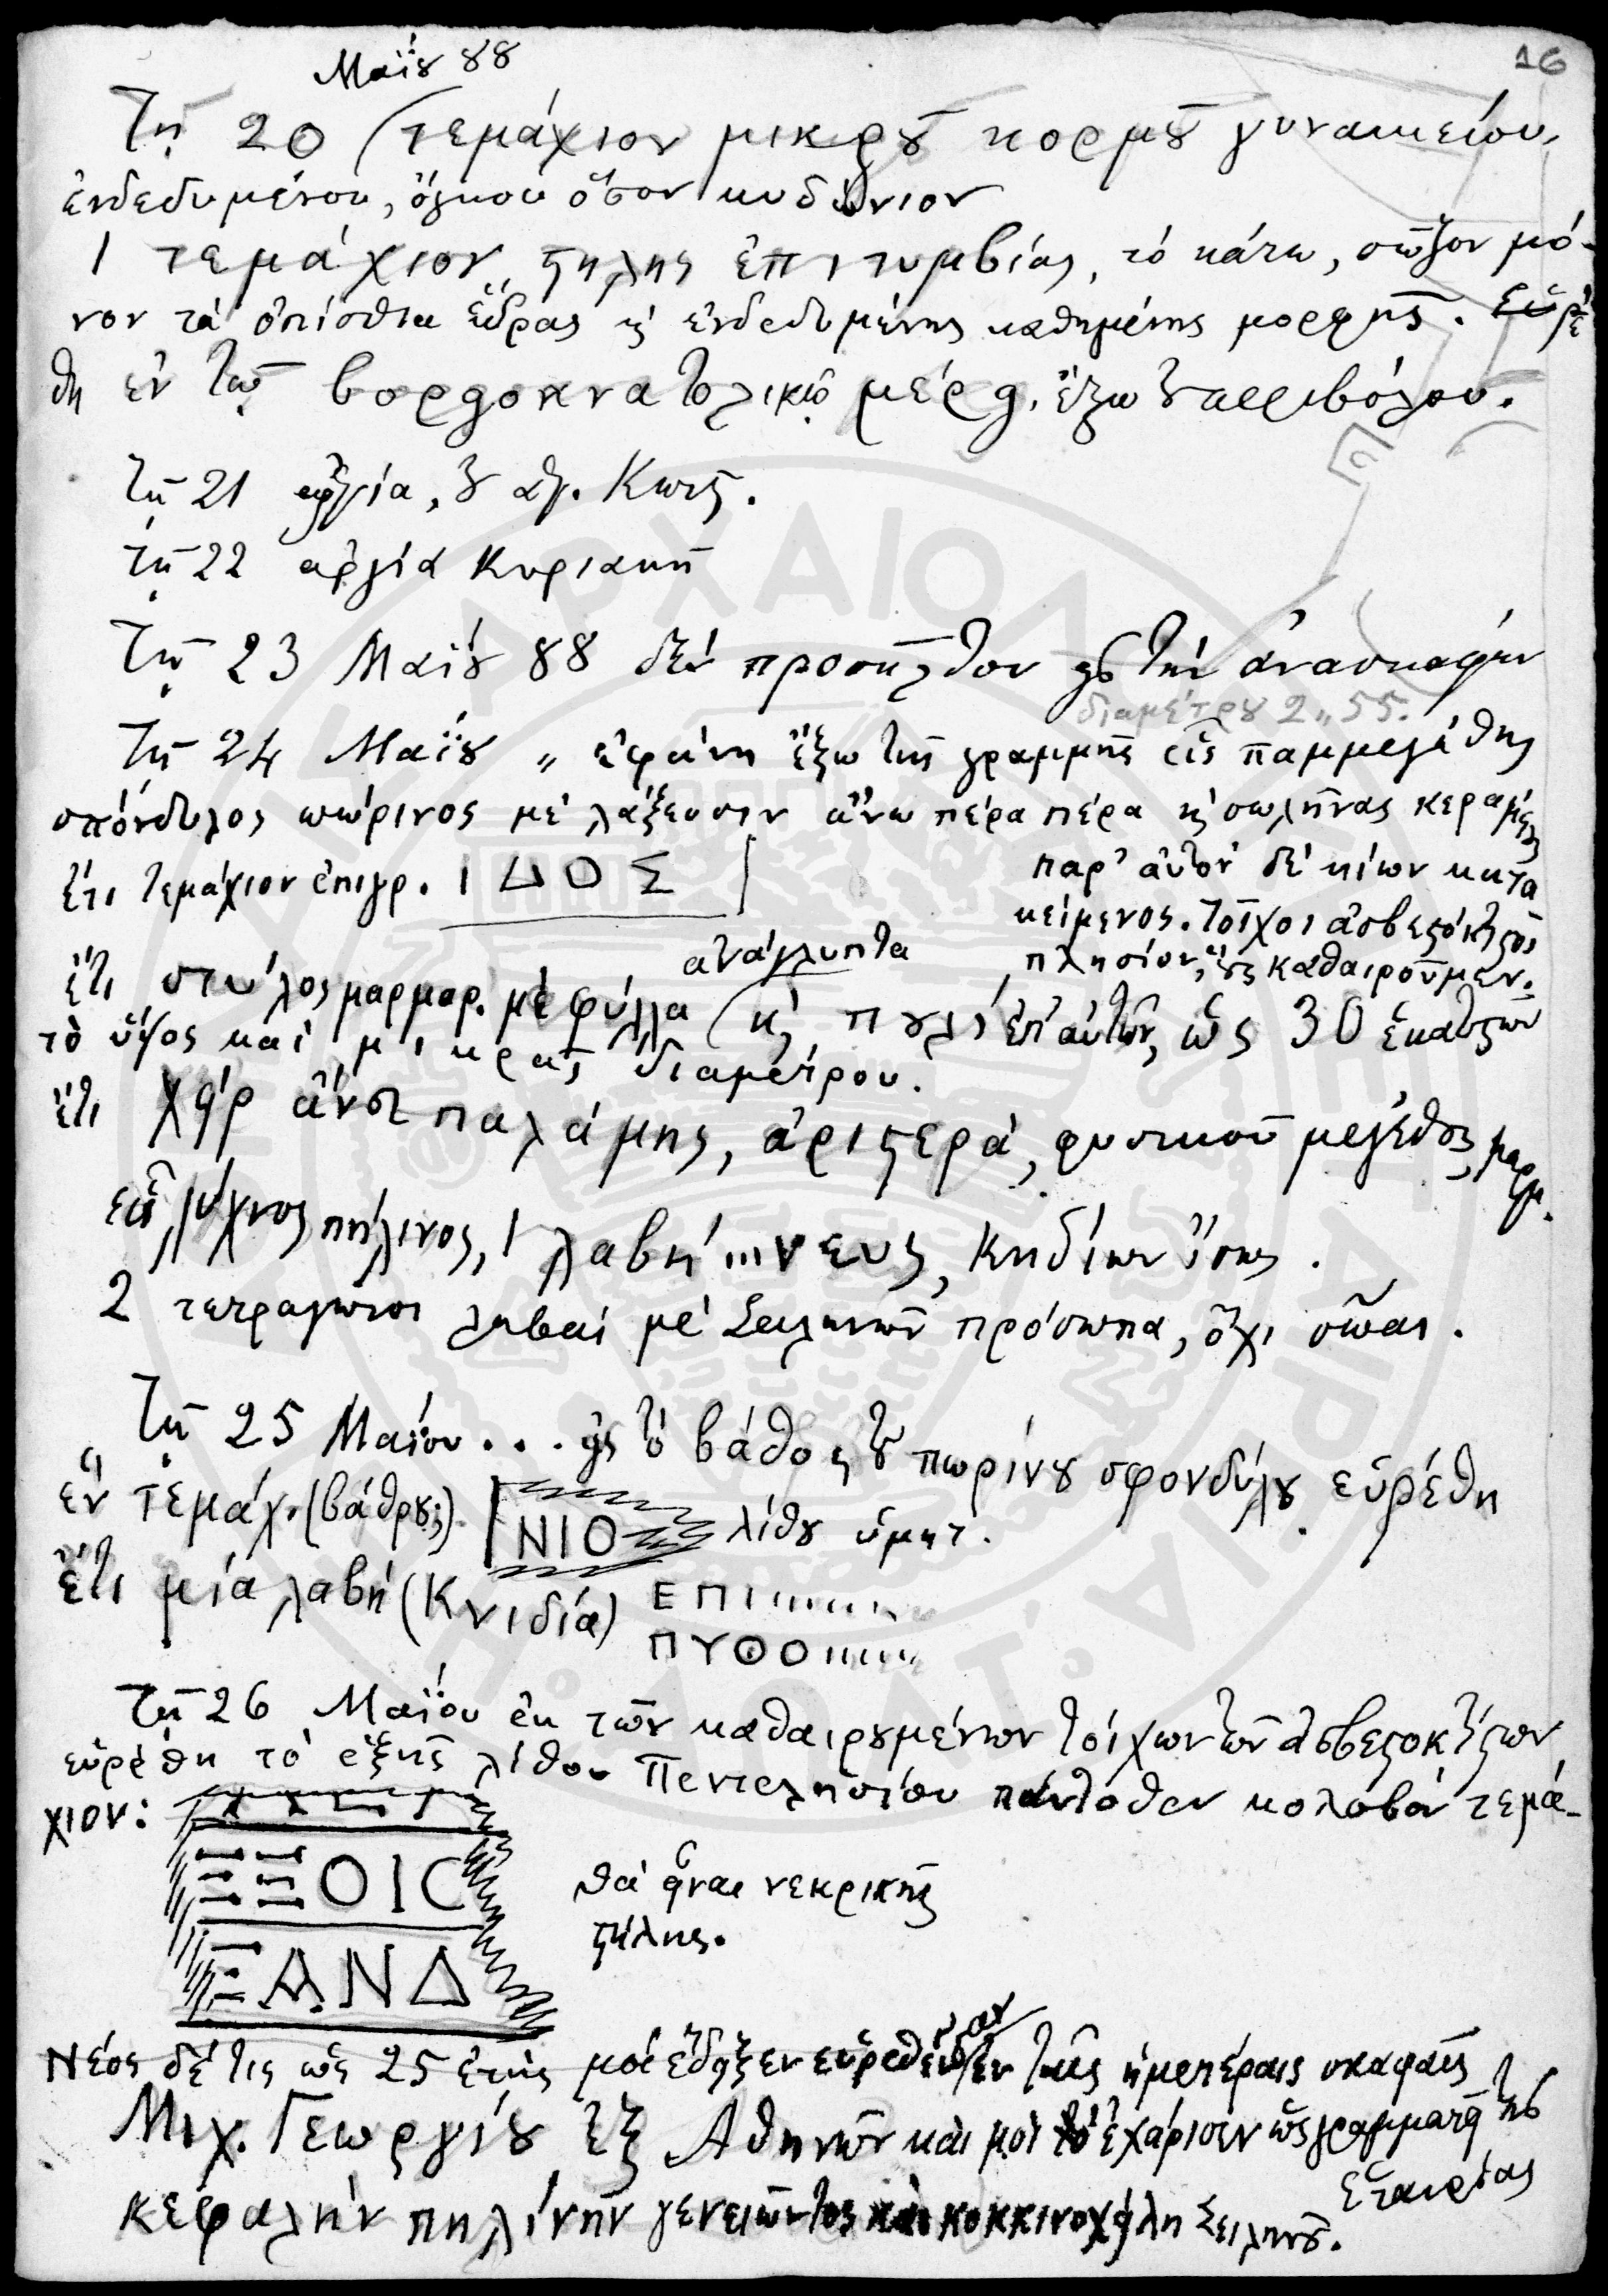 16
Μαΐου 88
Τῇ 20 (τεμάχιον μικροῦ κορμοῦ γυναικείου,
ἐνδεδυμένου, ὄγκου ὅσον κυδώνιον
1 τεμάχιον στήλης ἐπιτυμβίας, τὸ κάτω, σῶζον μό-
νον τὰ ὀπίσθια ἕδρας κ ἐνδεδυμένης καθημένης μορφῆς. Εὑρέ
θη ἐν τῷ βορειοανατολικῷ μέρει ἔξω τοῦ περιβόλου.
Τῇ 21 ἀργία, τοῦ ἁγ. Κωνς.
Τῇ 22 ἀργία Κυριακή
Τῇ 23 Μαΐου 88 δὲν προσῆλθον εἰς τὴν ἀνασκαφήν
διαμέτρου 2,,55.
Τῇ 24 Μαΐου ,, ἐφάνη ἔξω τῆς γραμμῆς εἷς παμμεγέθης
σπόνδυλος πώρινος μὲ λάξευσιν ἄνω πέρα πέρα κ σωλῆνας κεραμέους
παρ' αὐτὸν δὲ κίων κατα
ἔτι τεμάχιον ἐπιγρ. ΙΔΟΣ
κείμενος. Τοῖχοι ἀσβεστόκτιστοι
πλησίον, οὓς καθαιροῦμεν.
ἀνάγλυπτα
ἔτι στῦλος μαρμαρ. μὲ φύλλα (κ πουλὶ ἐπ' αὐτῶν, ὡς 30 ἑκατοστῶν
τὸ ὕψος καὶ μικρᾶς διαμέτρου.
ἔτι χεὶρ ἄνευ παλάμης, ἀριστερά, φυσικοῦ μεγέθους, μαρμ.
εἷς λύχνος πήλινος, 1 λαβὴ ...νευς, Κνιδίων ἴσως.
2 τετράγωνοι λαβαὶ μὲ Σειληνῶν πρόσωπα, ὄχι σῶαι.
Τῇ 25 Μαΐου... εἰς τὸ βάθος τοῦ πωρίνου σφονδύλου εὑρέθη
ἓν τεμάχ. (βάθρου;) ΝΙΟ λίθου ὑμηττ.
ἔτι μία λαβὴ (Κνιδία) ΕΠΙ.......
ΠΥΘΟ......
Τῇ 26 Μαΐου ἐκ τῶν καθαιρουμένων τοίχων τῶν ἀσβεστοκτίστων
εὑρέθη τὸ ἑξῆς λίθου Πεντελησίου πάντοθεν κολοβὸν τεμά-
χιον:
ΞΞΟΙС
θὰ εἶναι νεκρικῆς
στήλης.
ΞΑΝΔ
Νέος δέ τις ὡς 25 ἐτῶν μοὶ ἔδειξεν εὑρεθεῖσαν ἐν ταῖς ἡμετέραις σκαφαῖς
Μιχ. Γεωργίου ἐξ Ἀθηνῶν καὶ μοὶ τὸ ἐχάρισεν ὡς γραμματεῖ τῆς
Ἑταιρίας
κεφαλὴν πηλίνην γενειῶντος καὶ κοκκινοχείλη Σειληνοῦ.